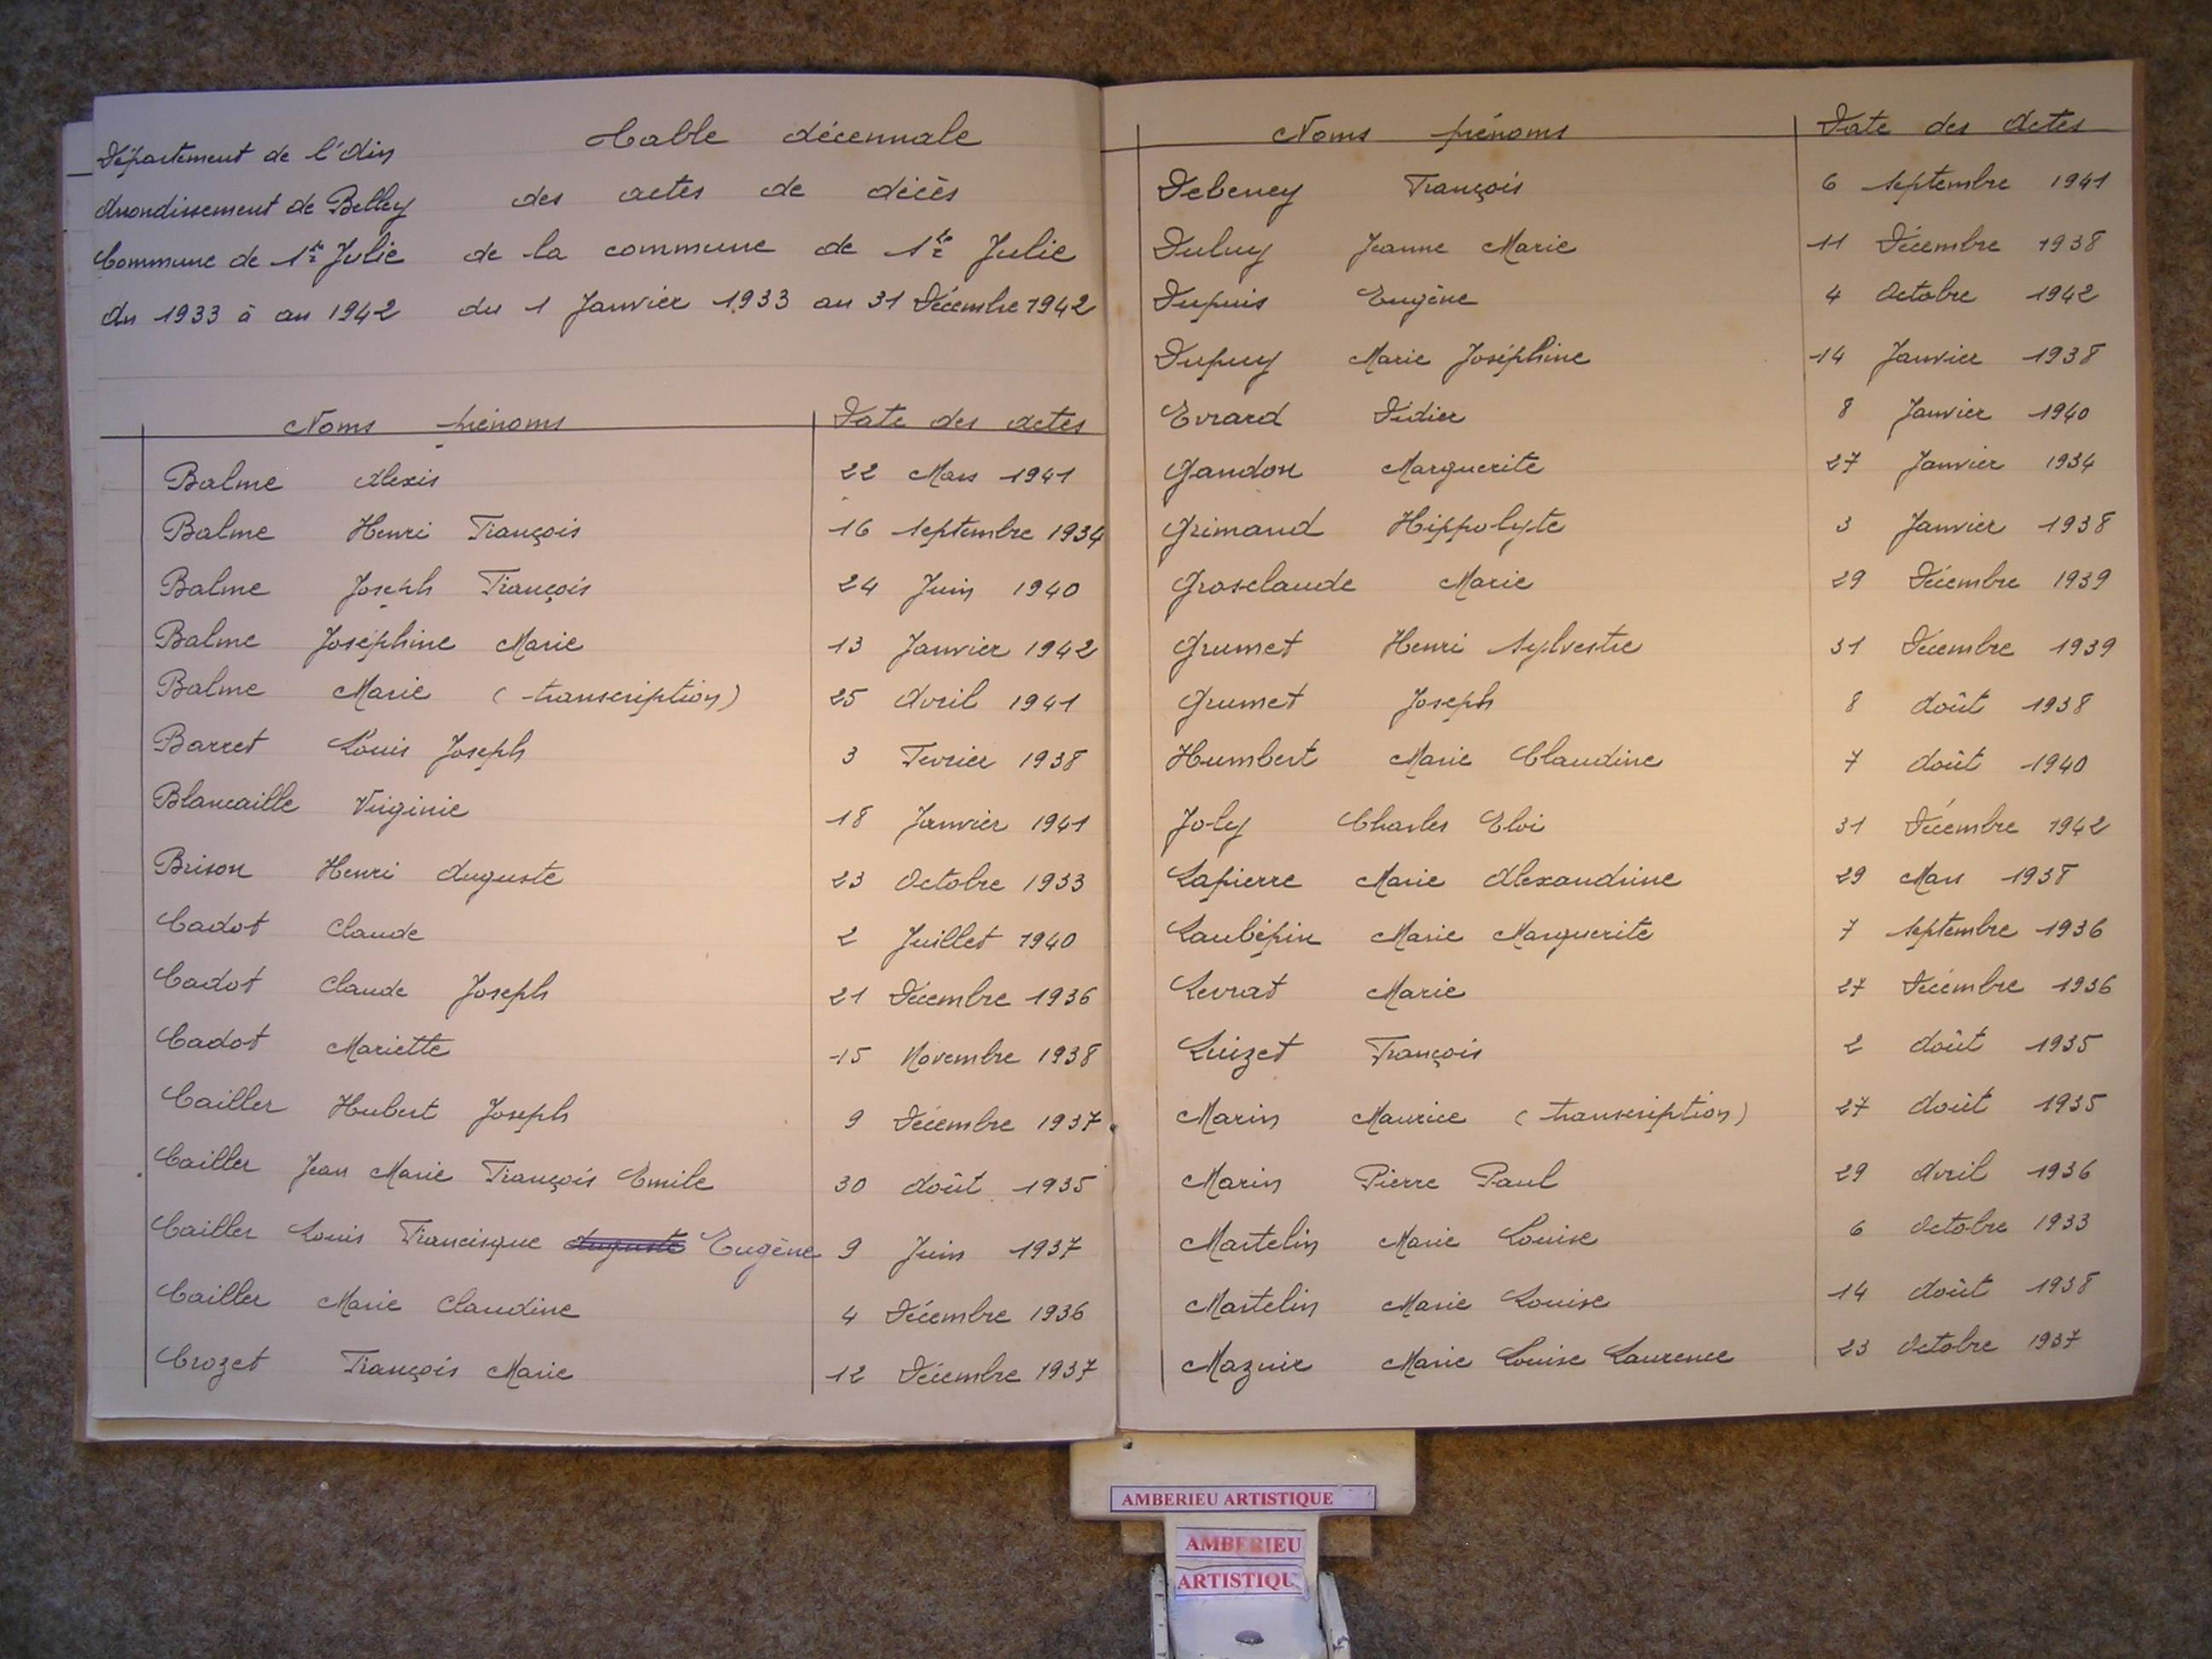 Département de l'Ain
Arrondissement de Belley
Commune de Ste Julie
An 1933 à an 1942
Table décennale
des actes de décès
de la commune de Ste Julie
du 1 Janvier 1933 au 31 Décembre 1942
Noms prénoms Date des actes
Balme Alexis 22 Mars 1941
Balme Henri François 16 septembre 1934
Balme Joseph François 24 Juin 1940
Balme Joséphine Marie 13 Janvier 1942
Balme Marie (transcription) 25 Avril 1941
Barret Louis Joseph 3 Fevrier 1938
Blancaille Virginie 18 Janvier 1941
Brison Henri Auguste 23 Octobre 1933
Cadot Claude 2 Juillet 1940
Cadot Claude Joseph 21 Décembre 1936
Cadot Mariette 15 Novembre 1938
Cailler Hubert Joseph 9 Décembre 1937
Cailler Jean Marie François Emile 30 Août 1935
Cailler Louis Francisque Auguste Eugène 9 Juin 1937
Cailler Marie Claudine 4 Décembre 1936
Crozet François Marie 12 Décembre 1937
Noms prénoms Date des actes
Debeney François 6 septembre 1941
Duluy Jeanne Marie 11 Décembre 1938
Dupuis Eugène 4 Octobre 1942
Dupuy Marie Joséphine 14 Janvier 1938
Evrard Didier 8 Janvier 1940
Gandon Marguerite 27 Janvier 1934
Grimand Hippolyte 3 Janvier 1938
Grosclaude Marie 29 Décembre 1939
Grumet Henri Sylvestre 31 Décembre 1939
Grumet Joseph 8 Août 1938
Humbert Marie Claudine 7 Août 1940
Joly Charles Eloi 31 Décembre 1942
Lapierre Marie Alexandrine 29 Mars 1938
Laubépin Marie Marguerite 7 septembre 1936
Levrat Marie 27 Décembre 1936
Luizet François 2 Août 1935
Marin Maurice (transcription) 27 Août 1935
Marin Pierre Paul 29 Avril 1936
Martelin Marie Louise 6 Octobre 1933
Martelin Marie Louise 14 Août 1938
Maznir Marie Louise Laurence 23 Octobre 1937
AMBERIEU ARTISTIQUE
AMBERIEU
ARTISTIQU